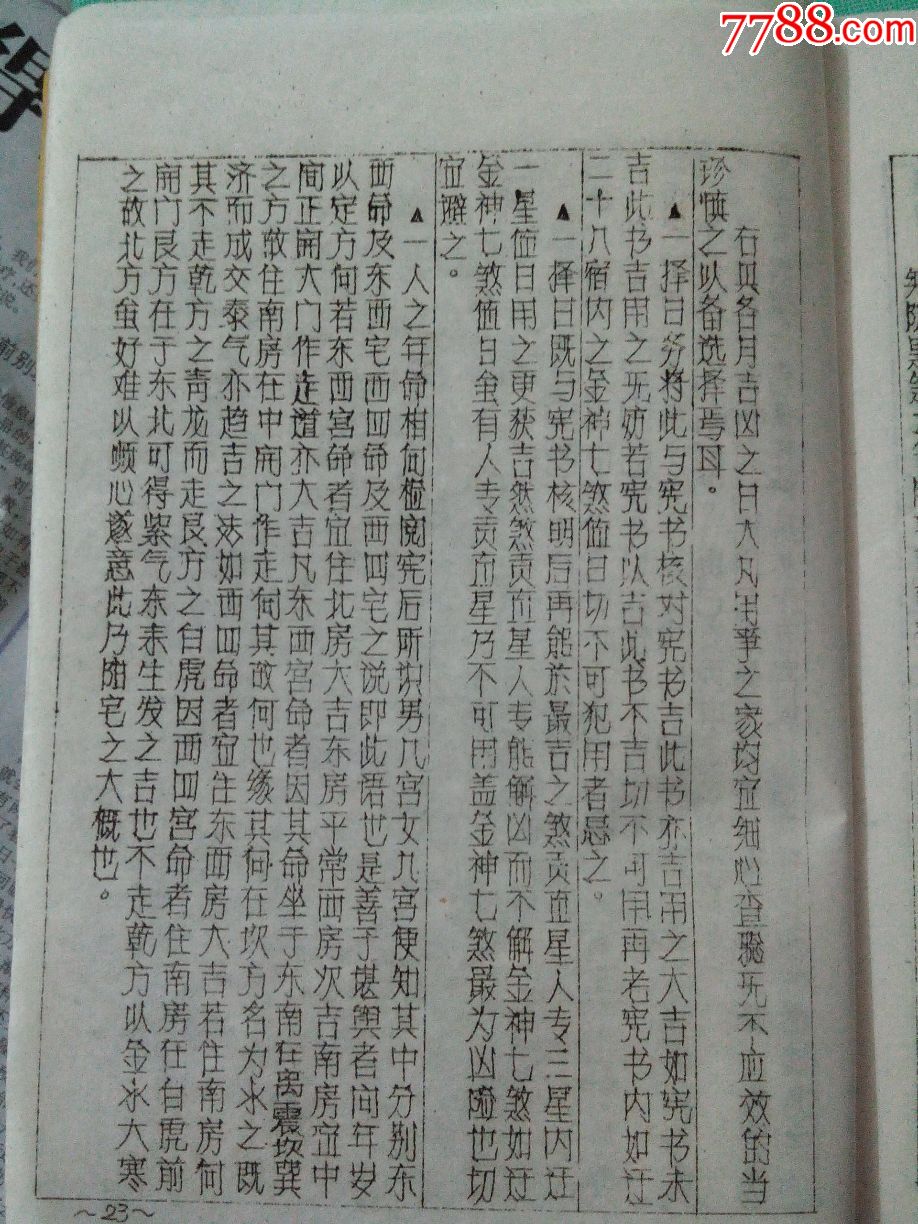 7788.com
右具各月吉凶之日大凡用事之家均宜细心查聡旡不应效的当
珍慎之以备选择焉耳。
▲一择日务将此与宪书核对宪书吉此书亦吉用之大吉如宪书未
吉此书吉用之旡妨若宪书以吉此书不吉切不可用再老宪书内如迂
二十八宿内之金神七煞值日切不可犯用者忌之。
▲一择日既与宪书核明后再能於最吉之煞贡直星人专三星内迂
一星值日用之更获吉然煞贡直星人专能解凶而不解金神七煞如迂
金神七煞值日虽有人专贡直星乃不可用盖金神七煞最为凶险也切
宜避之。
▲一人之年命相何检阅宪后所识男几宫女几宫便知其中分别东
西命及东西宅西四命及西四宅之说即此语也是善于堪舆者问年岁
以定方何若东西宫命者宜住北房大吉东房平常西房次吉南房宜中
间正开大门作走道亦大吉凡东西宫命者因其命坐于东南在离震坎巽
之方故住南房在中开门作走何其故何也缘其何在坎方名为水之既
济而成交泰气亦趋吉之效如西四命者宜住东西房大吉若住南房何
其不走乾方之青龙而走艮方之白虎因西四宫命者住南房在白虎前
开门艮方在于东北可得紫气东来生发之吉也不走乾方以金水大寒
之故北方虽好难以顺心遂意此乃阳宅之大概也。
～23～